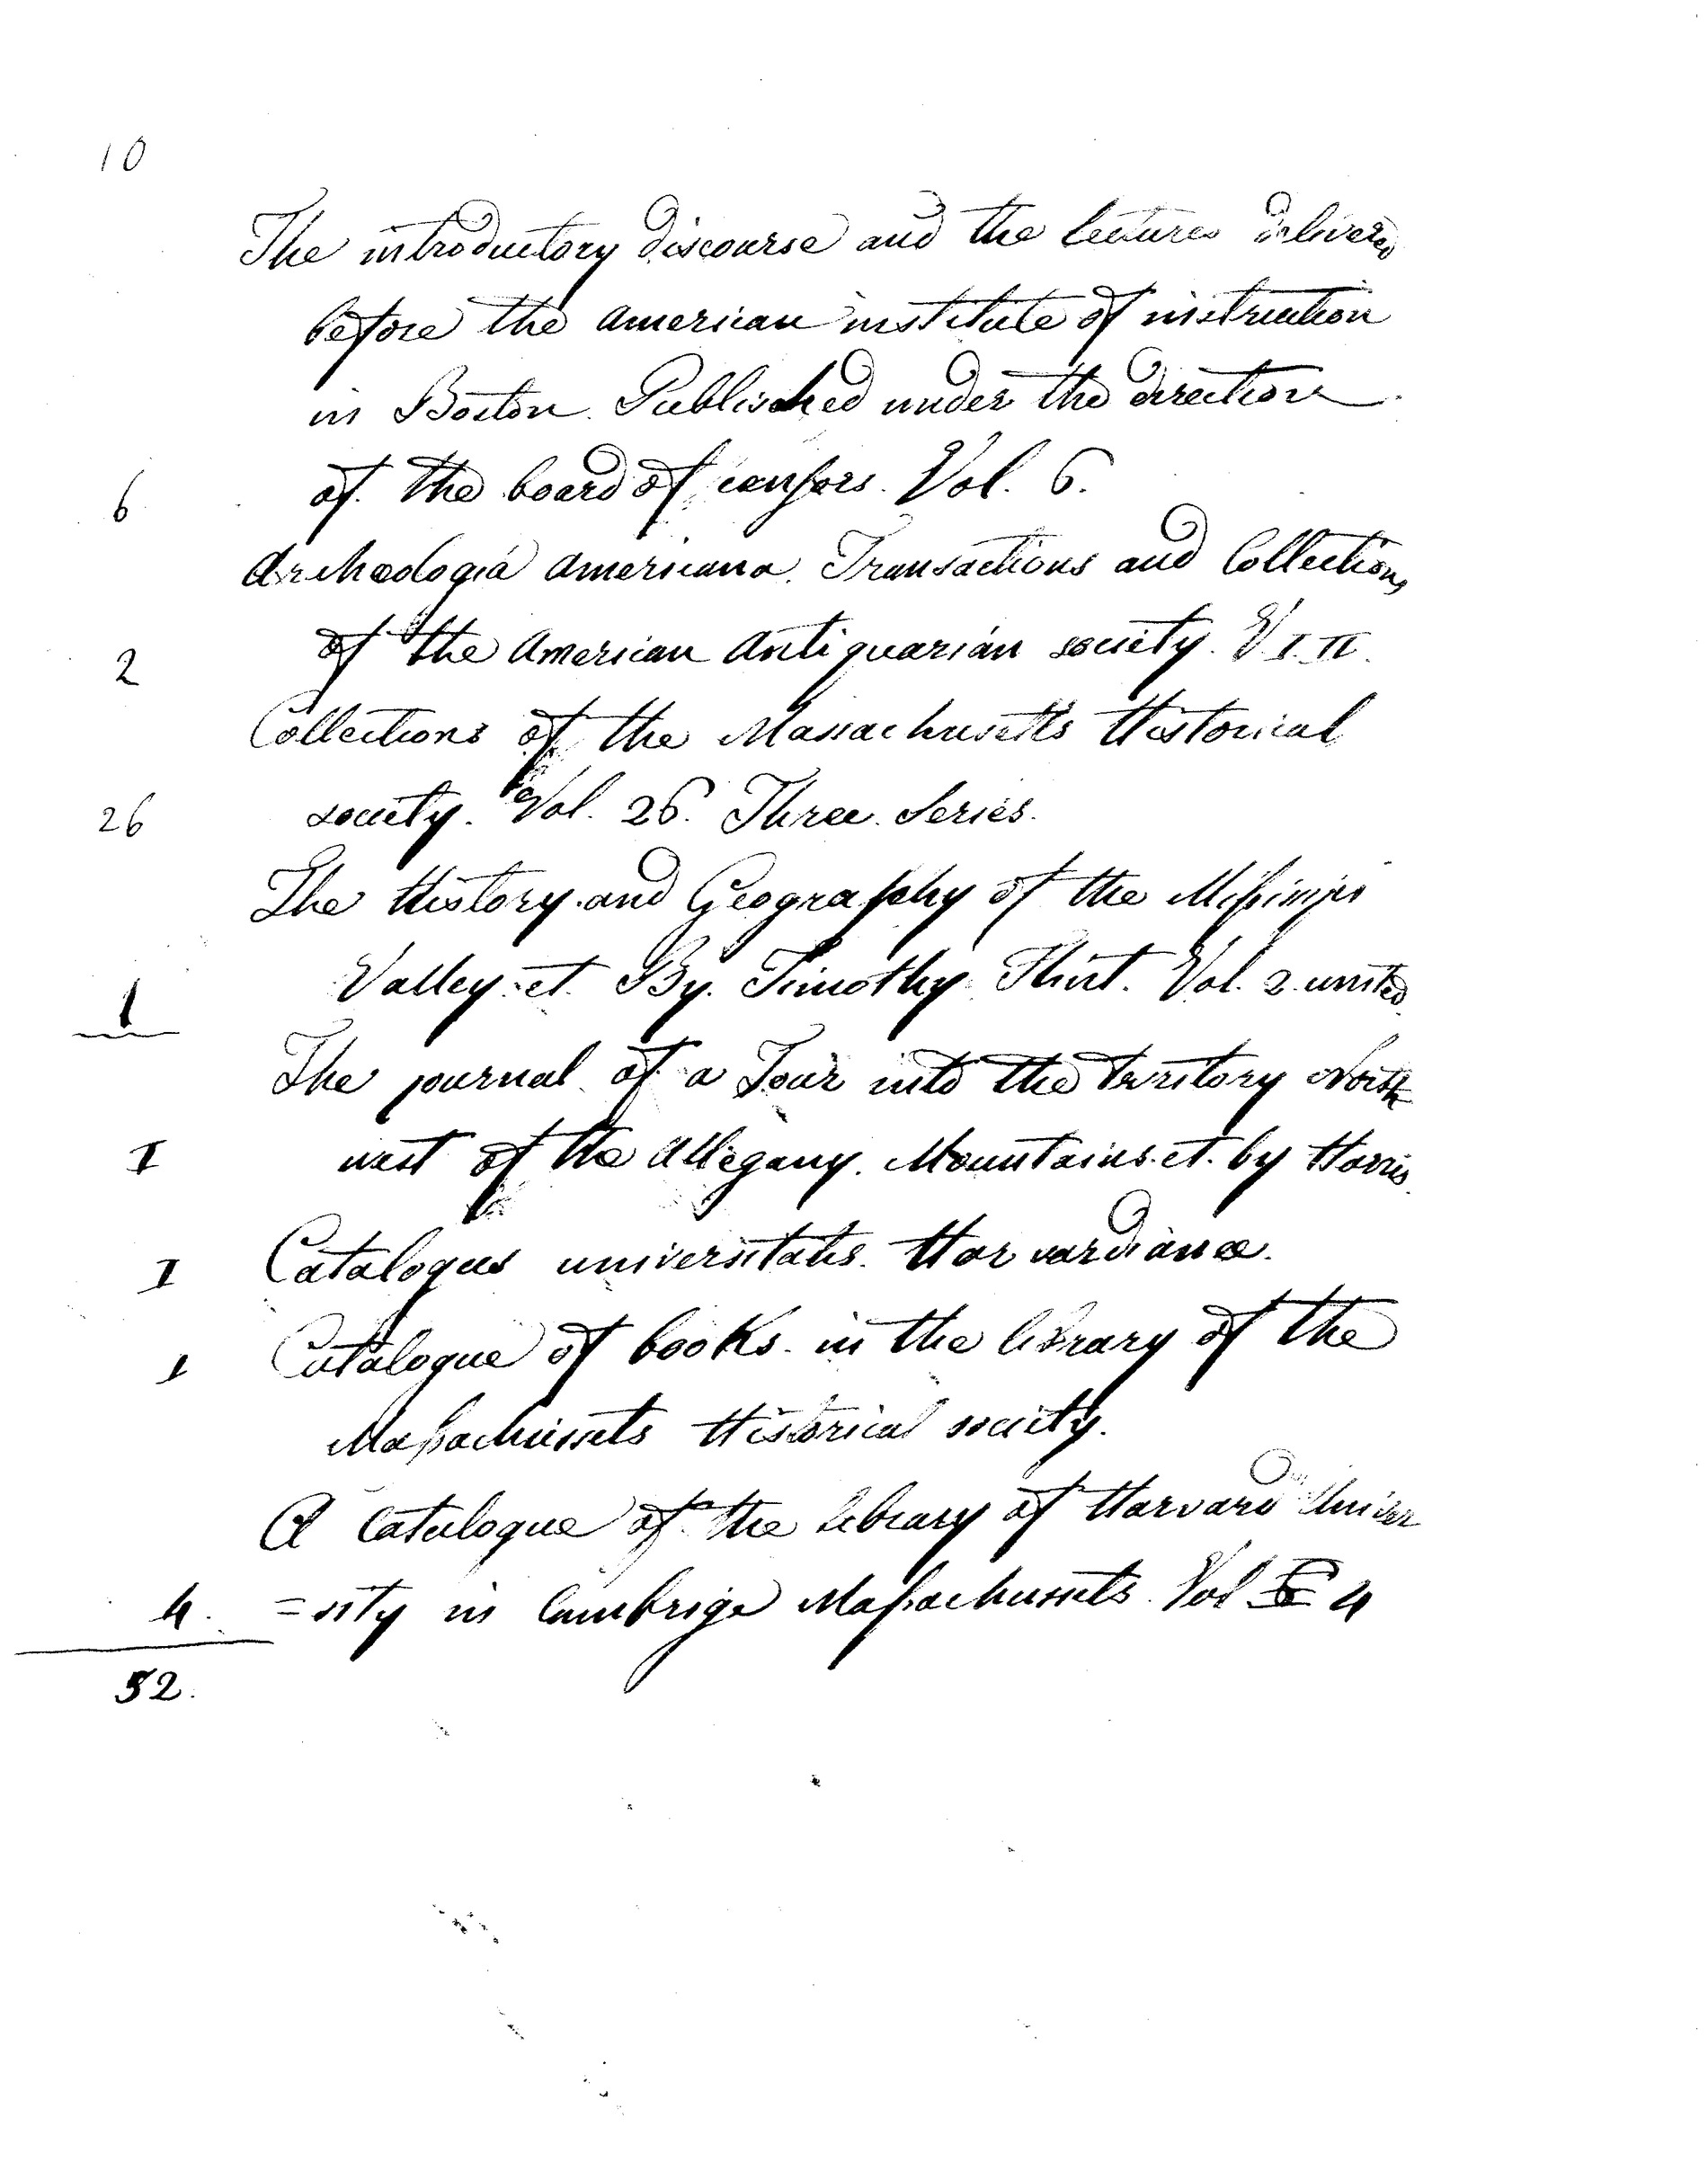 10
The introductory discourse and the lectures delivered
before the american institute of instruction
in Boston. Published under the direction
6 of the board of cenſors. Vol. 6.
Archæologia americana. Transactions and Collections
2 of the American Antiquarian society. V I. II.
Collections of the Massachusetts Historical
26 society. Vol. 26. Three Series.
The History and Geography of the Miſsisippi
1 Valley et. By. Timothy Flint. Vol. 2. united
The journal of a Tour into the Territory North
I west of the Allegany. Mountains. et. by Harris.
I Catalogus universitatis. Harvardianæ.
1 Catalogue of books in the library of the
Maſsachussets Historical society.
A Catalogue of the library of Harvard Univer
4. =sity in Cambrige Maſsachussets. Vol 4
52.